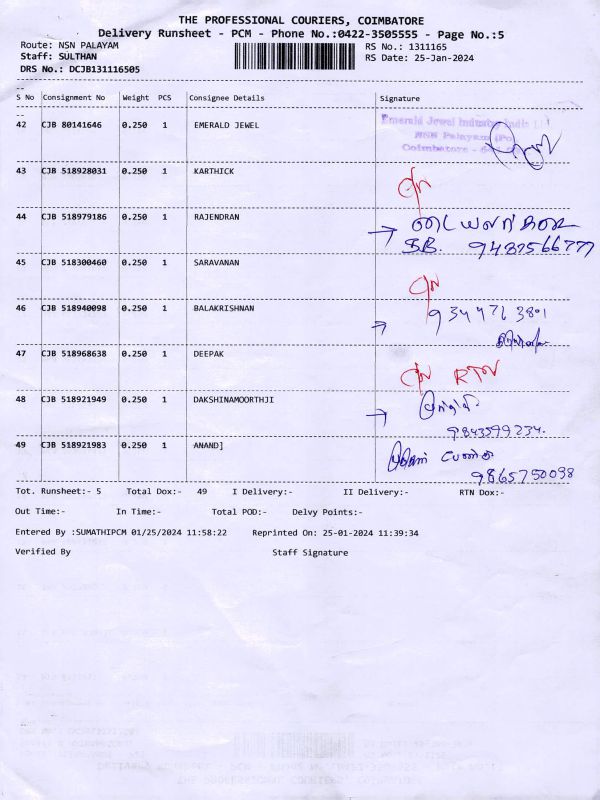 THE PROFESSIONAL COURIERS, COIMBATORE
Delivery Runsheet - PCM - Phone No.:0422-3505555 - Page No.:5
Route: NSN PALAYAM RS No.: 1311165
Staff: SULTHAN RS Date: 25-Jan-2024
DRS No.: DCJB131116505
S No Consignment No Weight PCS Consignee Details Signature
42 CJB 80141646 0.250 1 EMERALD JEWEL Emerald Jewel Industry India
NSN Palayam (Po
Coimbatore - 641
43 CJB 518928031 0.250 1 KARTHICK
44 CJB 518979186 0.250 1 RAJENDRAN
9487566777
45 CJB 518300460 0.250 1 SARAVANAN
46 CJB 518940098 0.250 1 BALAKRISHNAN 9344713801
47 CJB 518968638 0.250 1 DEEPAK RTN
48 CJB 518921949 0.250 1 DAKSHINAMOORTHJI
9843599234.
49 CJB 518921983 0.250 1 ANAND]
9865750098
Tot. Runsheet:- 5 Total Dox:- 49 I Delivery:- II Delivery:- RTN Dox:-
Out Time:- In Time:- Total POD:- Delvy Points:-
Entered By :SUMATHIPCM 01/25/2024 11:58:22 Reprinted On: 25-01-2024 11:39:34
Verified By Staff Signature